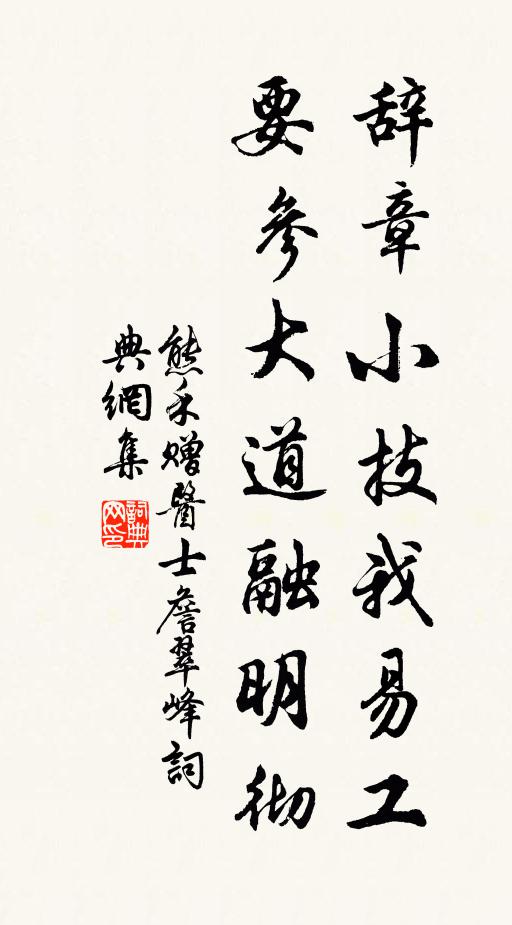 辞章小技我易工
要參大道融明彻
熊禾赠醫士詹翠峰詞
典網集
詞典网印